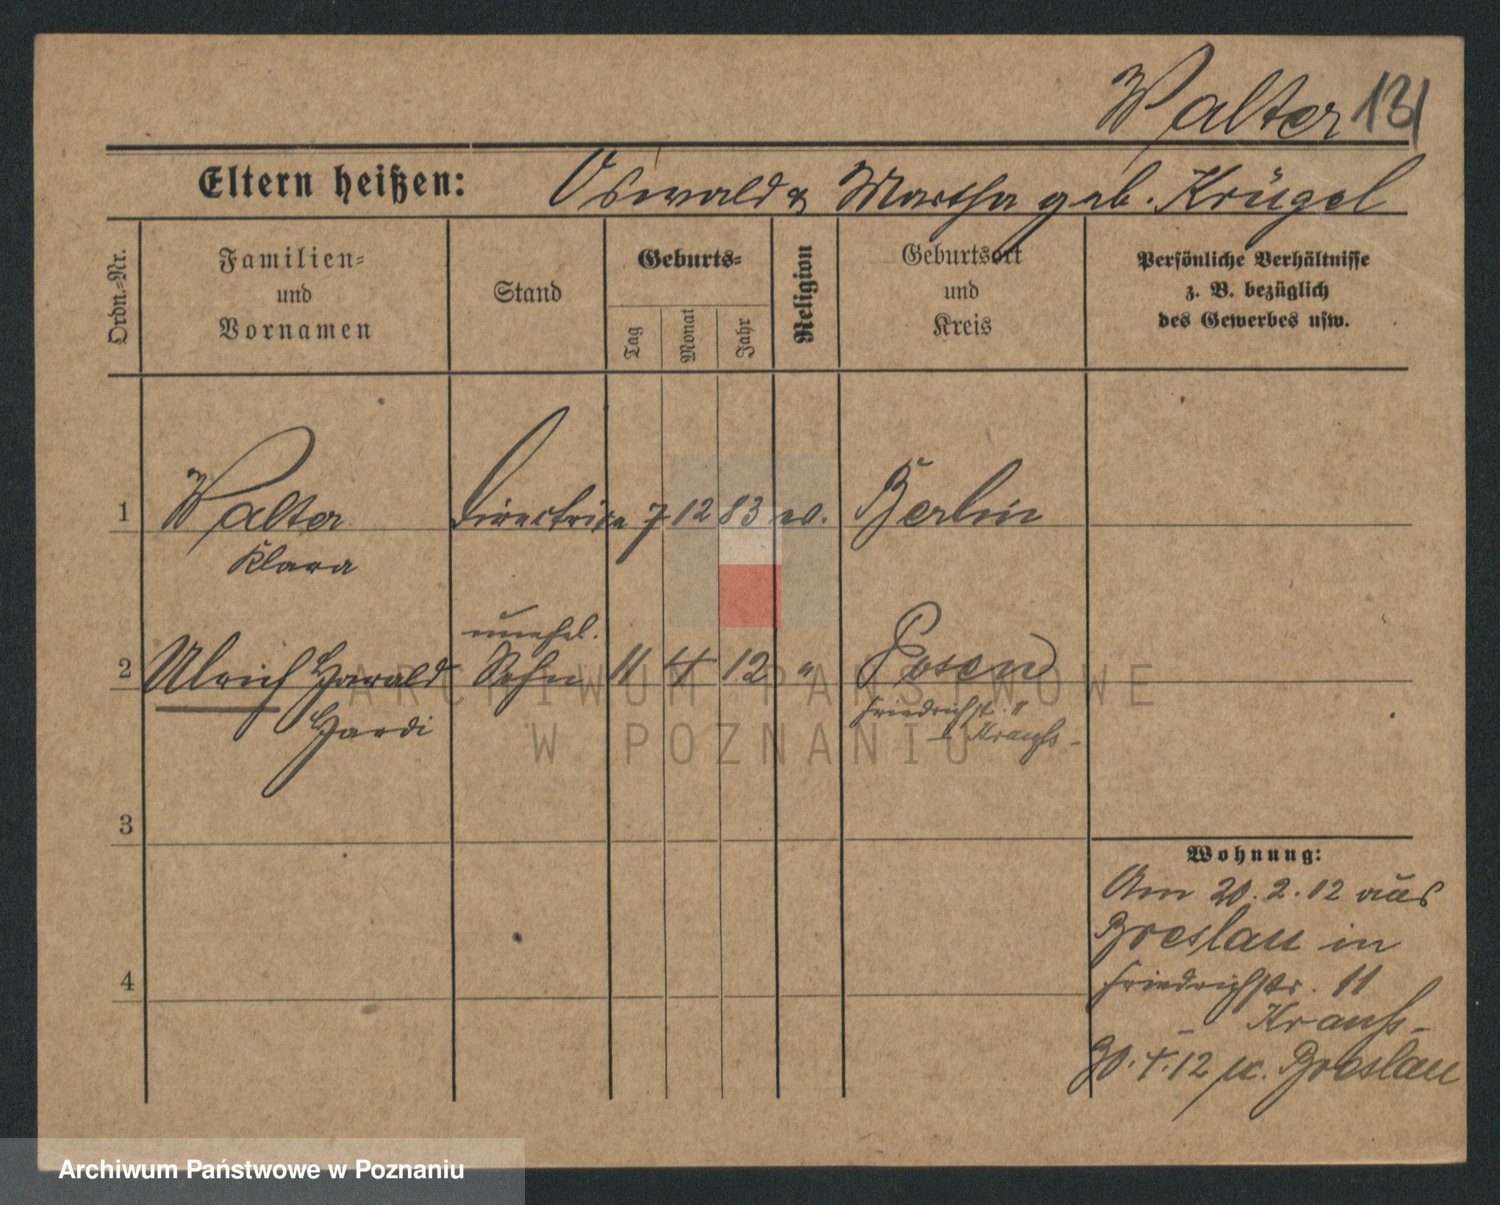 Walter 131
Eltern heißen: Oswald & Martha geb. Krügel
Ordn.-Nr.
Familien-
und
Vornamen
Stand
Geburts-
Tag
Monat
Jahr
Religion
Geburtsort
und
Kreis
Persönliche Verhältnisse
z. B. bezüglich
des Gewerbes usw.
1 Walter Directrice 7 12 83 ev. Berlin
Klara
unehel.
2 Ulrich Harald Sohn 11 4 12 " Posen
Hardi
Friedrichstr. 11
- Krauss -
3
Wohnung:
Am 20.2.12 aus
Breslau in
Friedrichstr. 11
- Krauss -
30.4.12 n. Breslau
4
ARCHIWUM PAŃSTWOWE
W POZNANIU
Archiwum Państwowe w Poznaniu